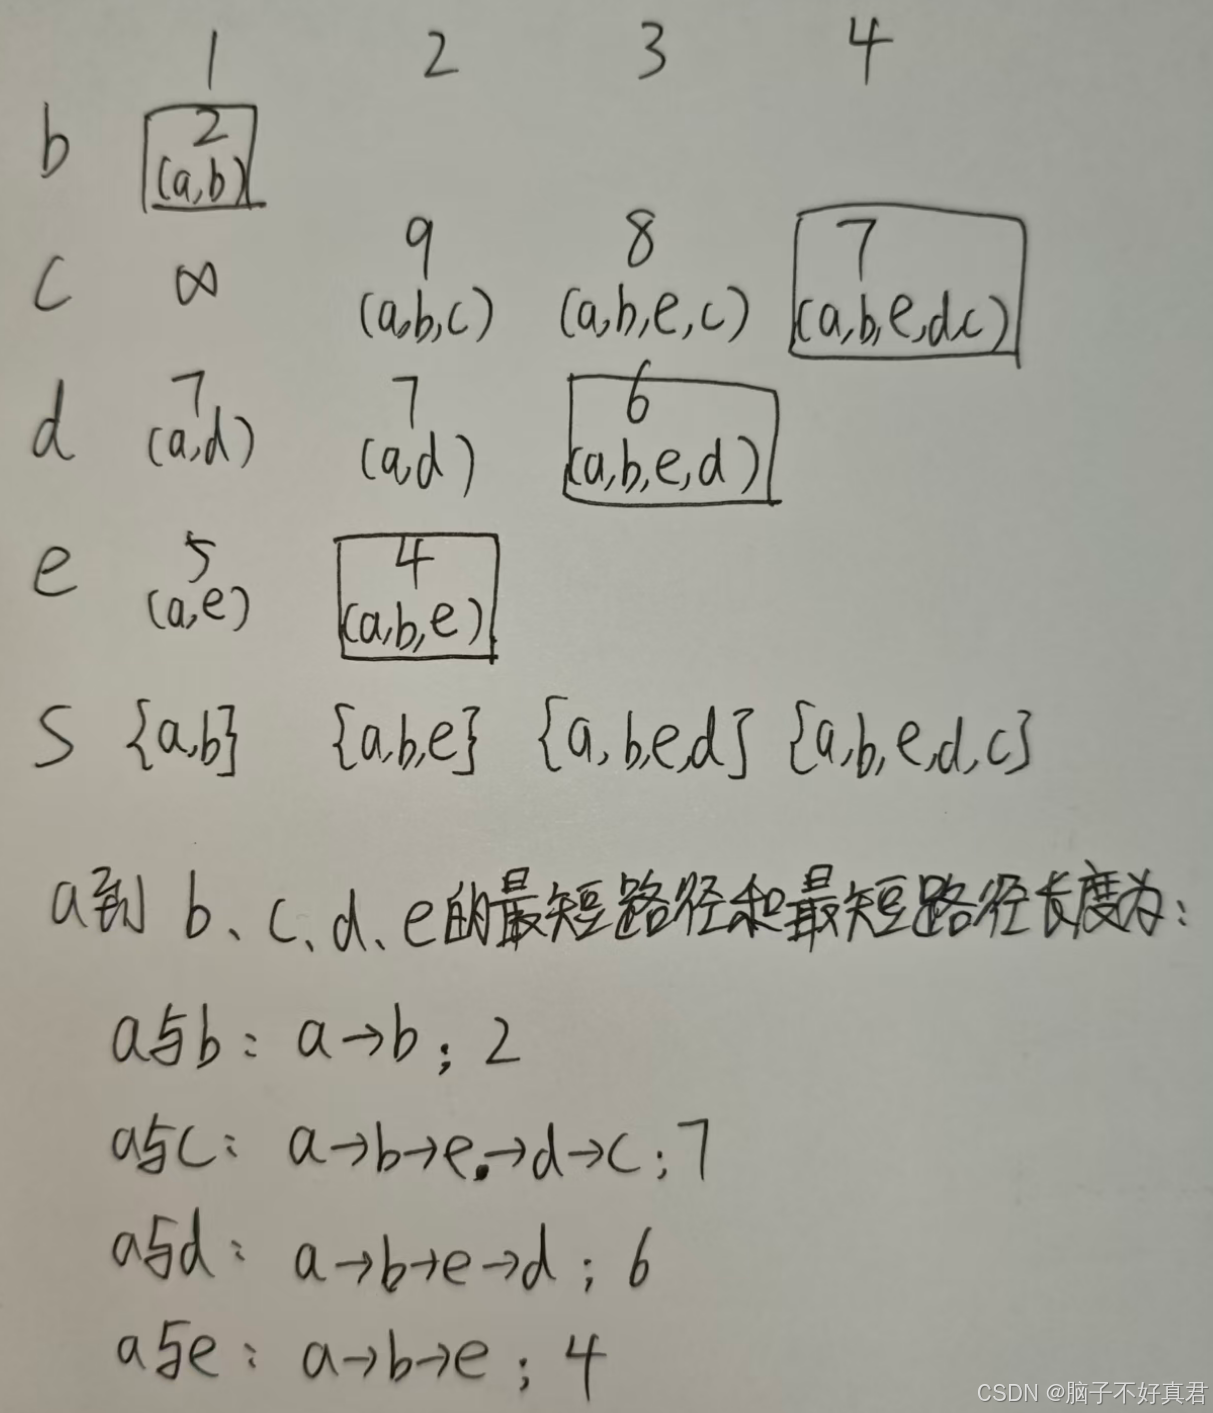 1 2 3 4
b 2
(a,b)
9 8 7
c ∞ (a,b,c) (a,b,e,c) (a,b,e,d,c)
7 7 6
d (a,d) (a,d) (a,b,e,d)
e 5 4
(a,e) (a,b,e)
S {a,b} {a,b,e} {a,b,e,d} {a,b,e,d,c}
a到 b、c、d、e的最短路径和最短路径长度为：
a与b：a→b；2
a与c：a→b→e→d→c；7
a与d：a→b→e→d；6
a与e：a→b→e；4
CSDN @脑子不好真君